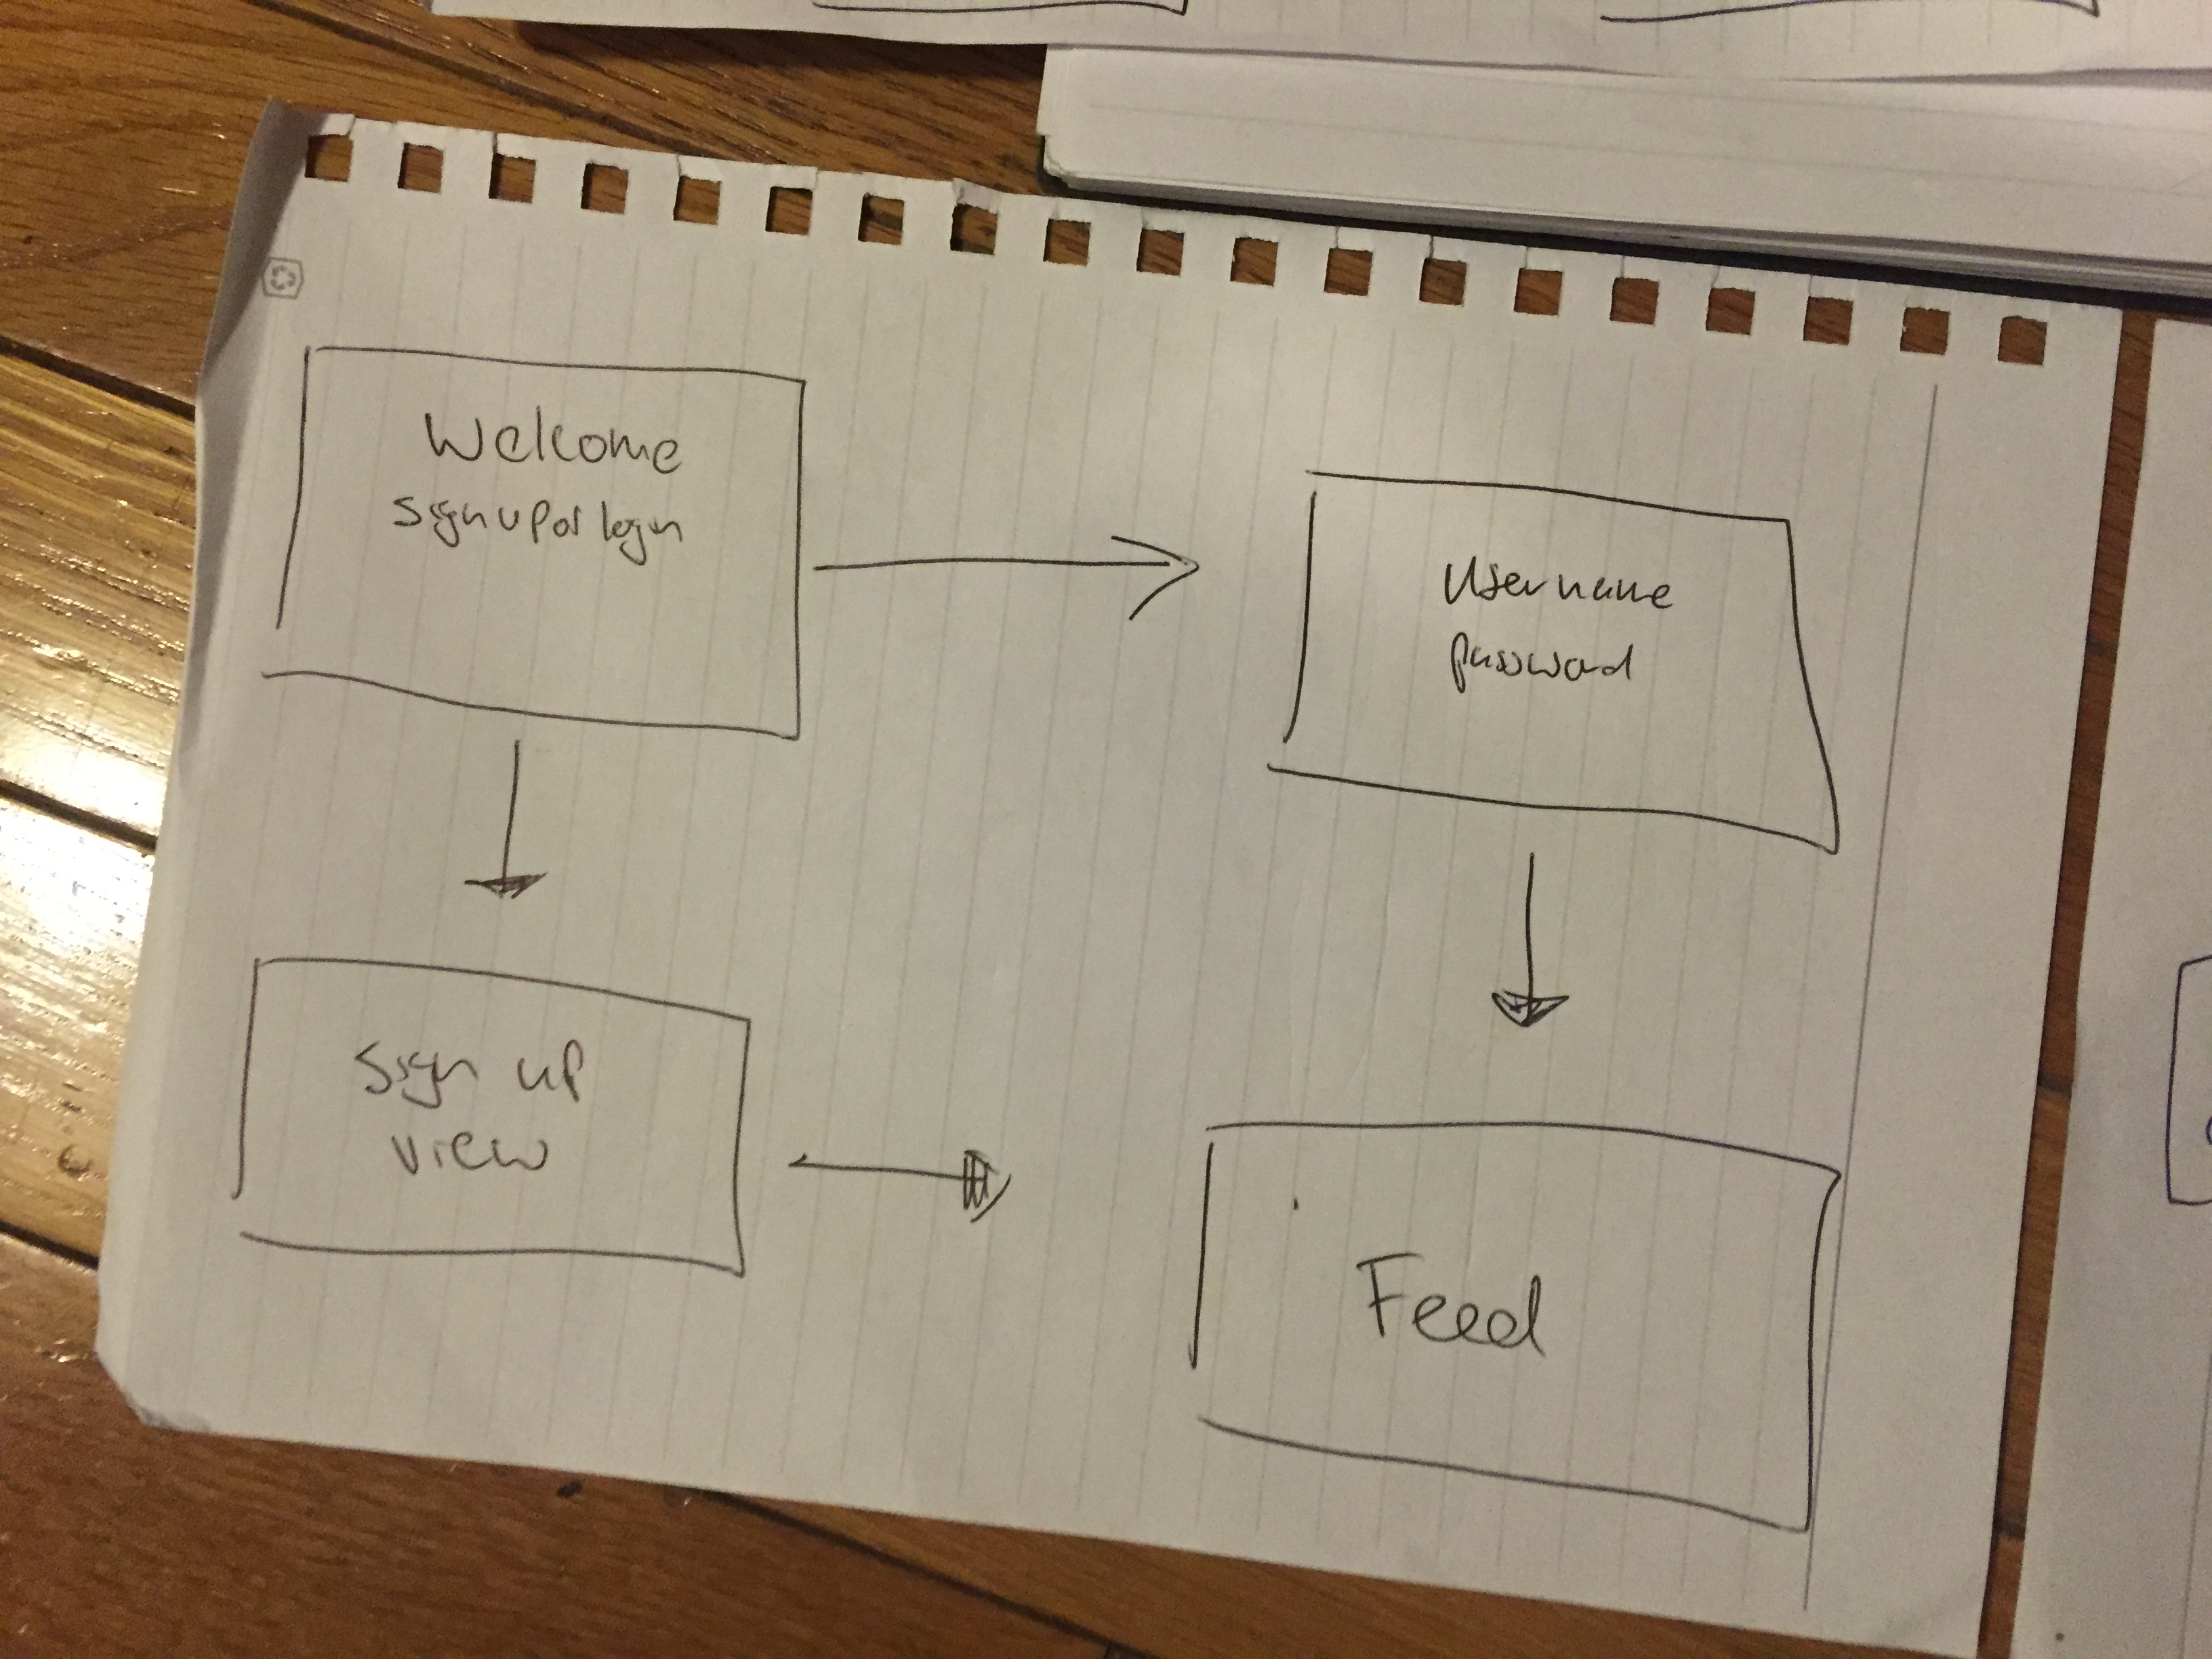 Welcome
Sign up or login
Username
password
Sign up
view
Feed